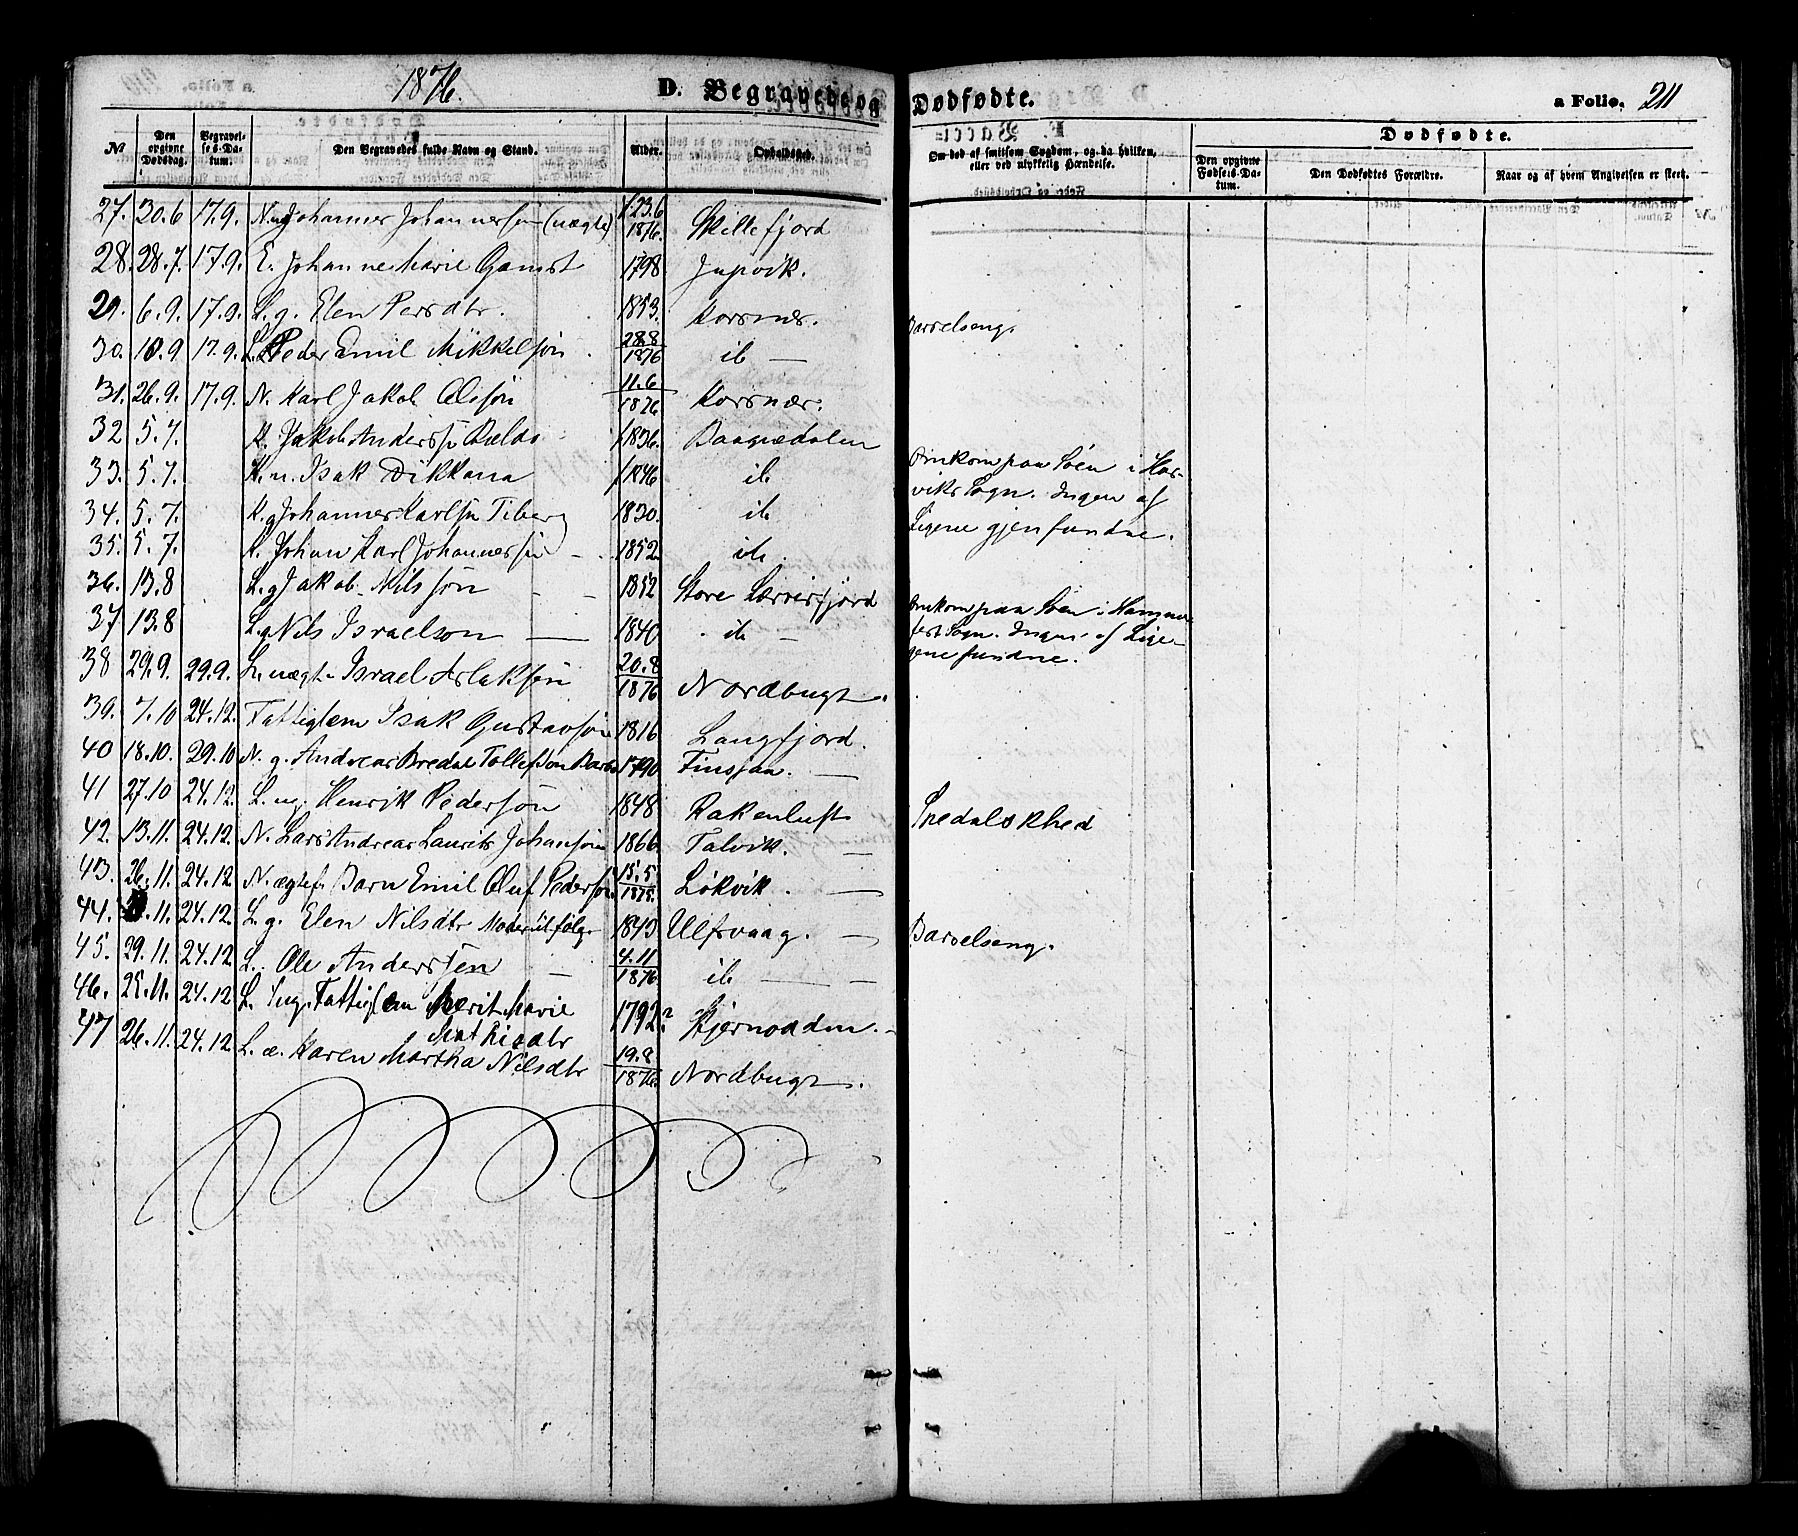 1876.
D. Begravede og Dødfødte.
a Folio. 211
No Den opgivne Dødsdag. Begravelses-Datum. Den Begravedes fulde Navn og Stand. Alder. Opholdssted. Om død af smitsom Sygdom, og da hvilken, eller ved ulykkelig Hændelse. Dødfødte.
Den opgivne Fødsels-Datum. Den Dødfødtes Forældre. Naar og af hvem Angivelsen er skeet.
27. 30.6 17.9. N. Johannes Johannessøn (uægte) f. 23.6 1876. Skillefjord
28. 28.7. 17.9. E. Johanne Marie Gamst 1798 Jupvik.
29. 6.9. 17.9. L.g. Elen Persdtr. 1853. Korsnæs. Barselseng.
30. 10.9 17.9. Peder Emil Mikkelsøn 28.8 1876 ib
31. 26.9. 17.9. N. Karl Jakob Olssøn 11.6 1876 Korsnæs.
32 5.7. K. Jakob Anderss. 1836. Baagnedalen
33. 5.7. K.u. Isak Dikkana 1846 ib Omkom paa Søen i Has-
34. 5.7. K.g Johannes Karlsn Tiberg 1830. ib viks Sogn. Ingen af
35. 5.7. K. Johan Karl Johannessen 1852 ib. Ligene gjenfundne.
36. 13.8 L.g Jakob Nilssøn 1852 Store Lerrisfjord
37 13.8 L.g Nils Israelson 1840 ib Omkom paa Søen i Hammer-
fest Sogn. Ingen af Lige-
ne fundne.
38 29.9. 29.9. L. uægte Israel Aslaksøn 20.8 1876 Nordbugt.
39. 7.10 24.12. Fattiglem Isak Gustavsøn 1816 Langfjord.
40 18.10. 29.10 N. g. Andreas Bredal Tollefsøn 1790 Finsjan.
41 27.10 24.12. L. ug. Henrik Pedersøn 1848 Rakenluft Spedalskhed
42. 13.11. 24.12. N. Lars Andreas Laurits Johansøn 1866 Talvik.
43. 26.11. 24.12 N. ægtef. Barn Emil Oluf Pedersøn 15.5 1875. Lökvik.
44. .11. 24.12. L. g. Elen Nilsdtr 1843 Ulfsvaag. Barselseng.
45. 29.11. 24.12 L. Ole Anderssen 4.11 1876 ib
46. 25.11. 24.12 L. ug. Fattiglem Berit Marie
Mathisdtr 1792? Kjernodden.
47 26.11. 24.12. L. æ. Karen Martha Nilsdtr 19.8 1876. Nordbugt.